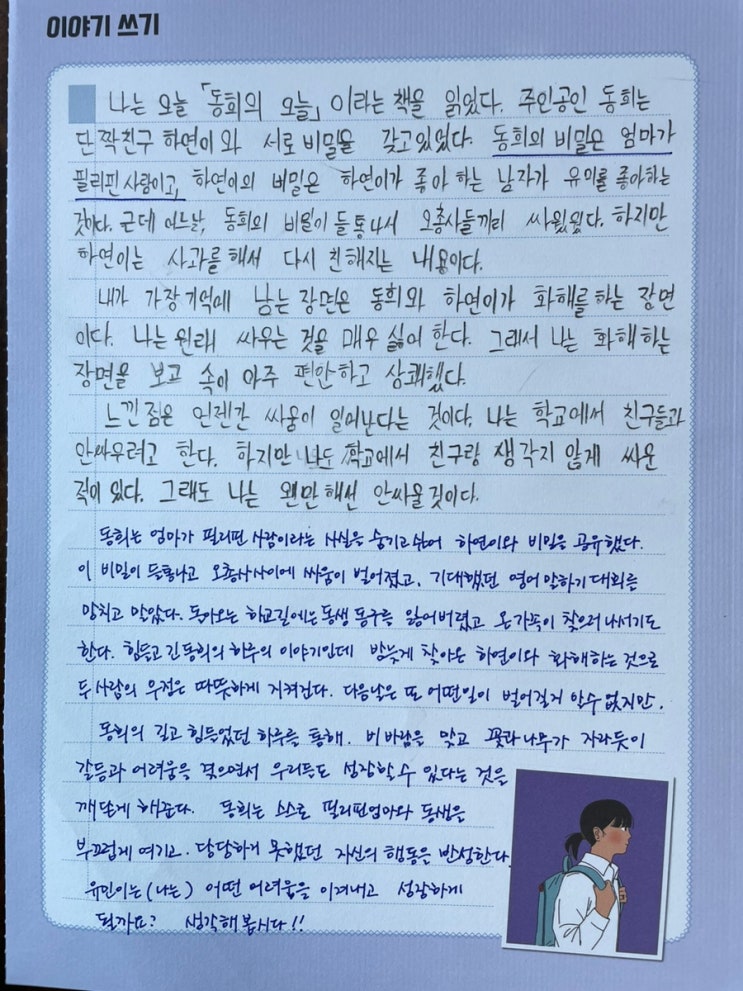 이야기 쓰기
나는 오늘 「동희의 오늘」이라는 책을 읽었다. 주인공인 동희는
단짝친구 하연이와 서로 비밀을 갖고있었다. 동희의 비밀은 엄마가
필리핀 사람이고, 하연이의 비밀은 하연이가 좋아 하는 남자가 유미를 좋아하는
것이다. 근데 어느날, 동희의 비밀이 들통나서 오총사들끼리 싸웠었다. 하지만
하연이는 사과를 해서 다시 친해지는 내용이다.
내가 가장 기억에 남는 장면은 동희와 하연이가 화해를 하는 장면
이다. 나는 원래 싸우는 것을 매우 싫어 한다. 그래서 나는 화해 하는
장면을 보고 속이 아주 편안하고 상쾌했다.
느낀 점은 언젠간 싸움이 일어난다는 것이다. 나는 학교에서 친구들과
안싸우려고 한다. 하지만 나도 학교에서 친구랑 생각지 않게 싸운
적이 있다. 그래도 나는 왠만 해선 안싸울 것이다.
동희는 엄마가 필리핀 사람이라는 사실을 숨기고 싶어 하연이와 비밀을 공유했다.
이 비밀이 들통나고 오총사 사이에 싸움이 벌어졌고, 기대했던 영어 말하기 대회를
망치고 말았다. 돌아오는 하교길에는 동생 동구를 잃어버렸고 온가족이 찾으러 나서기도
한다. 힘들고 긴 동희의 하루의 이야기인데 밤늦게 찾아온 하연이와 화해하는 것으로
두 사람의 우정은 따뜻하게 지켜진다. 다음날은 또 어떤일이 벌어질지 알수 없지만.
동희의 길고 힘들었던 하루를 통해. 비바람을 맞고 꽃과 나무가 자라듯이
갈등과 어려움을 겪으면서 우리들도 성장할 수 있다는 것을
깨닫게 해준다. 동희는 스스로 필리핀엄마와 동생을
부끄럽게 여기고. 당당하지 못했던 자신의 행동을 반성한다.
유민이는 (나는) 어떤 어려움을 이겨내고 성장하게
될까요? 생각해 봅시다!!